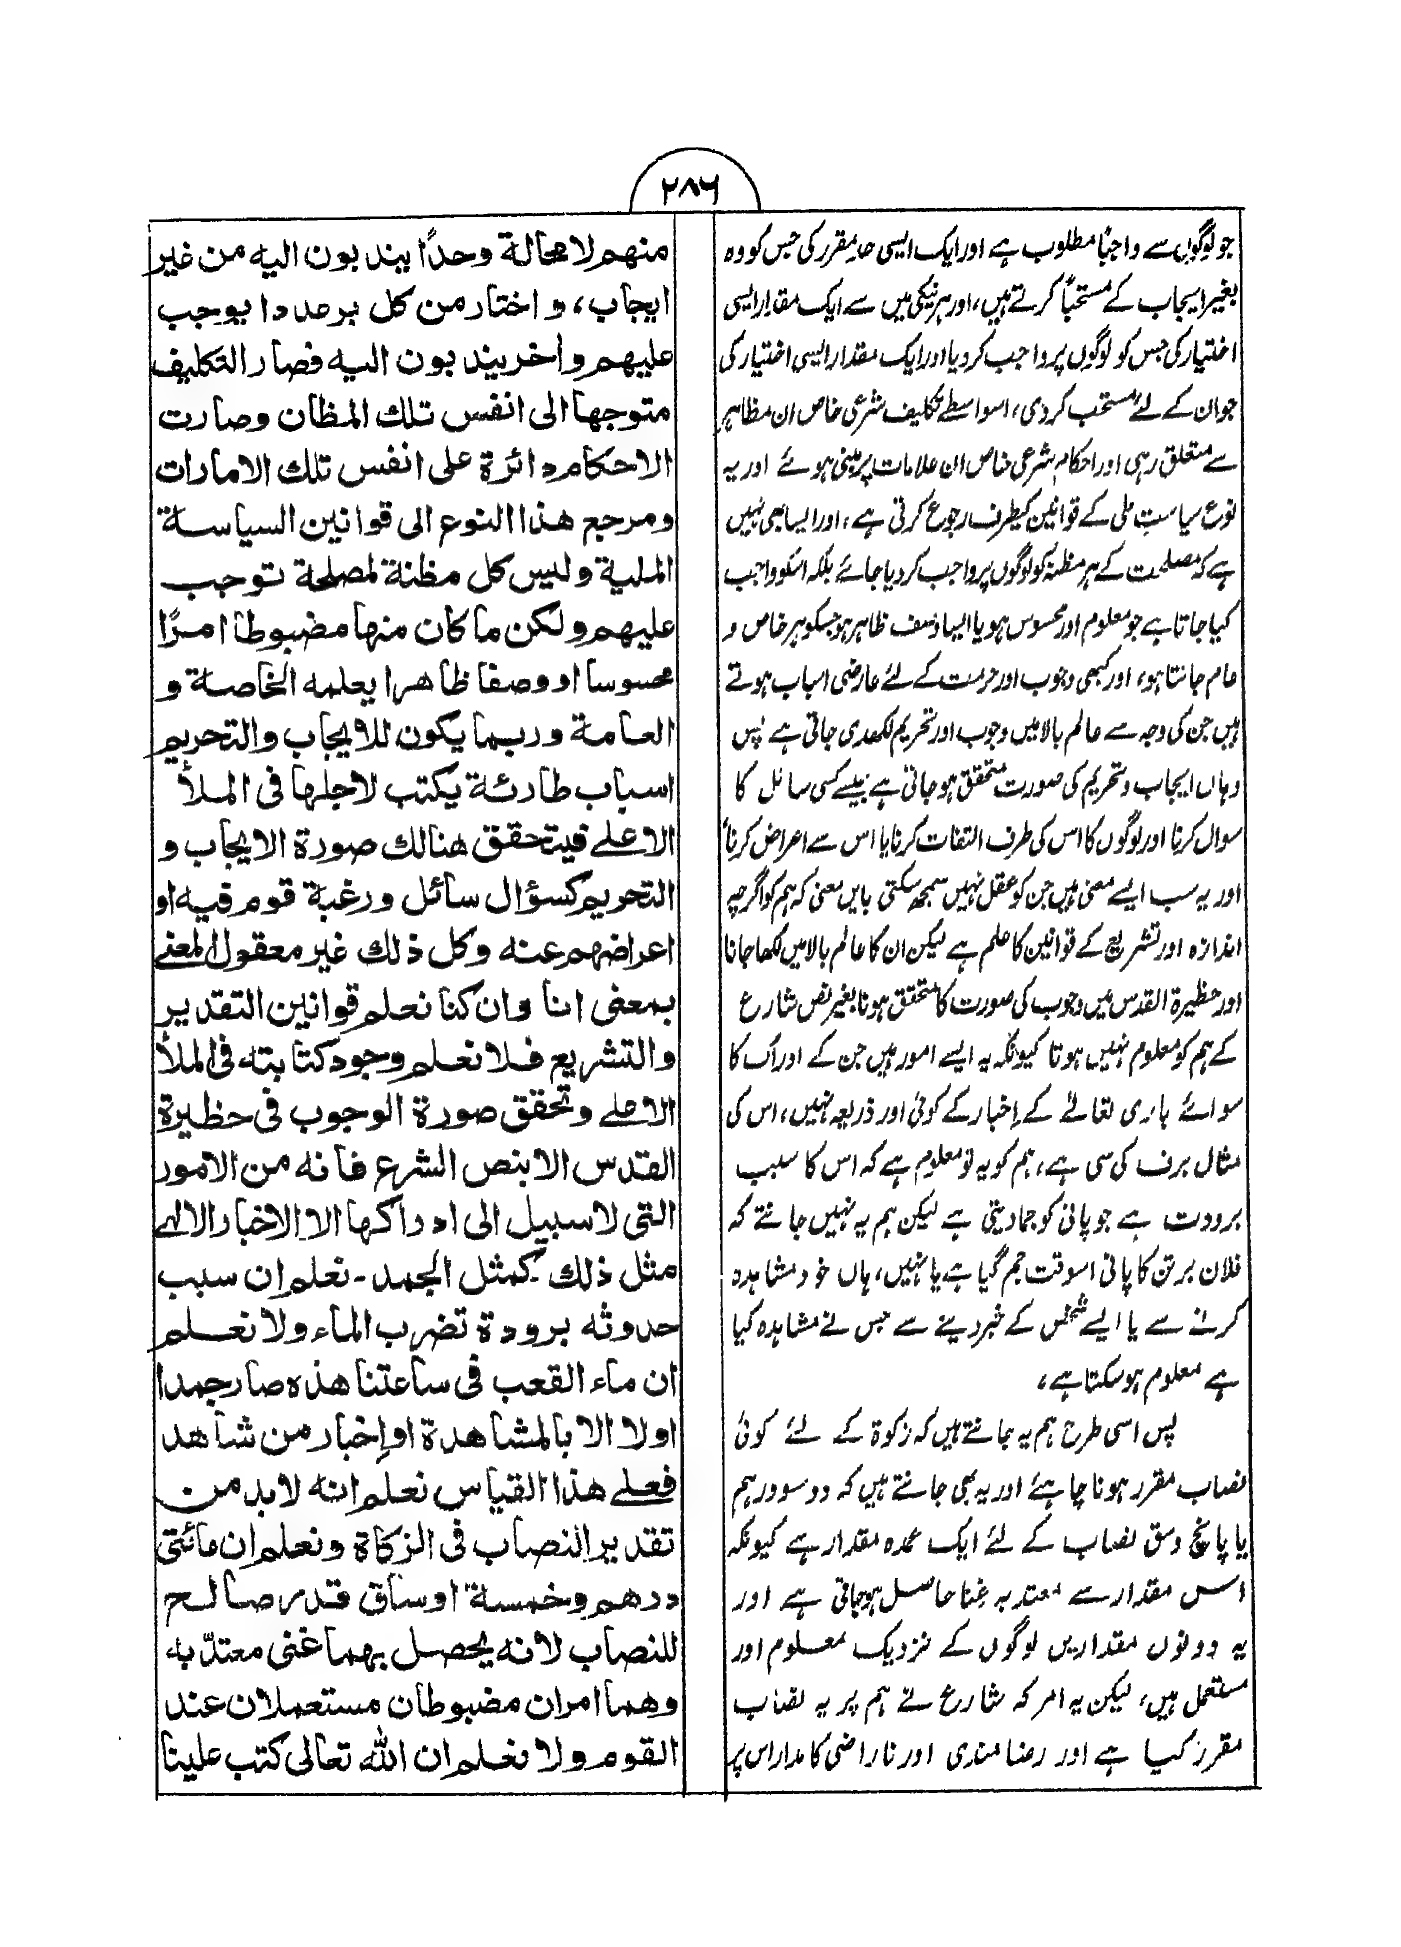 ۲۸۶
جو لوگوں سے واجباً مطلوب ہے اور ایک ایسی حد مقرر کی جس کو وہ
بغیر ایجاب کے مستحباً کرتے ہیں، اور ہر نیکی میں سے ایک مقدار ایسی
اختیار کی جس کو لوگوں پر واجب کر دیا اور ایک مقدار ایسی اختیار کی
جو ان کے لئے مستحب کر دی، اسواسطے تکلیف شرعی خاص ان مظاہر
سے متعلق رہی اور احکام شرعی خاص ان علامات پر مبنی ہوئے اور یہ
نوع سیاست ملی کے قوانین کیطرف رجوع کرتی ہے، اور ایسا بھی نہیں
ہے کہ مصلحت کے ہر مظنہ کو لوگوں پر واجب کر دیا جائے بلکہ اسکو واجب
کیا جاتا ہے جو معلوم اور محسوس ہو یا ایسا وصف ظاہر ہو جسکو ہر خاص و
عام جانتا ہو، اور کبھی وجوب اور حرمت کے لئے عارضی اسباب ہوتے
ہیں جن کی وجہ سے عالم بالا میں وجوب اور تحریم لکھدی جاتی ہے پس
وہاں ایجاب و تحریم کی صورت متحقق ہو جاتی ہے جیسے کسی سائل کا
سوال کرنا اور لوگوں کا اس کی طرف التفات کرنا یا اس سے اعراض کرنا
اور یہ سب ایسے معنی ہیں جن کو عقل نہیں سمجھ سکتی بایں معنی کہ ہم کو اگرچہ
اندازہ اور تشریع کے قوانین کا علم ہے لیکن ان کا عالم بالا میں لکھا جانا
اور حظیرة القدس میں وجوب کی صورت کا متحقق ہونا بغیر نص شارع
کے ہم کو معلوم نہیں ہوتا کیونکہ یہ ایسے امور ہیں جن کے ادراک کا
سوائے باری تعالےٰ کے اِخبار کے کوئی اور ذریعہ نہیں، اس کی
مثال برف کی سی ہے، ہم کو یہ تو معلوم ہے کہ اس کا سبب
برودت ہے جو پانی کو جما دیتی ہے لیکن ہم یہ نہیں جانتے کہ
فلان برتن کا پانی اسوقت جم گیا ہے یا نہیں، ہاں خود مشاہدہ
کرنے سے یا ایسے شخص کے خبر دینے سے جس نے مشاہدہ کیا
ہے معلوم ہو سکتا ہے،
پس اسی طرح ہم یہ جانتے ہیں کہ زکوة کے لئے کوئی
نصاب مقرر ہونا چاہئے اور یہ بھی جانتے ہیں کہ دو سو درہم
یا پانچ وسق نصاب کے لئے ایک عمدہ مقدار ہے کیونکہ
اس مقدار سے معتد بہ غِنا حاصل ہو جاتی ہے اور
یہ دونوں مقداریں لوگوں کے نزدیک معلوم اور
مستعمل ہیں، لیکن یہ امر کہ شارع نے ہم پر یہ نصاب
مقرر کیا ہے اور رضا مندی اور ناراضی کا مدار اس پر
منهم لا محالة وحدًا يندبون اليه من غير
ايجاب، واختار من كل برعددا يوجب
عليهم وأخر يندبون اليه فصار التكليف
متوجها الى انفس تلك المظان وصارت
الاحكام دائرة على انفس تلك الامارات
ومرجع هذا النوع الى قوانين السياسة
الملية وليس كل مظنة لمصلحة توجب
عليهم ولكن ما كان منها مضبوطا امرًا
محسوسا او وصفا ظاهرا يعلمه الخاصة و
العامة وربما يكون للايجاب والتحريم
اسباب طارئة يكتب لاجلها فى الملأ
الاعلے فيتحقق هنالك صورة الايجاب و
التحريم كسؤال سائل ورغبة قوم فيه او
اعراضهم عنه وكل ذلك غير معقول المعنے
بمعنى انا وان كنا نعلم قوانين التقدير
والتشريع فلا نعلم وجود كتابته فى الملأ
الاعلے وتحقق صورة الوجوب فى حظيرة
القدس الا بنص الشرع فانه من الامور
التى لا سبيل الى ادراكها الا الاخبار الالهے
مثل ذلك ـ كمثل الجمد ـ نعلم ان سبب
حدوثه برودة تضرب الماء ولا نعلم
ان ماء القعب فى ساعتنا هذه صار جمدا
اولا الا بالمشاهدة او اِخبار من شاهد
فعلے هذا القياس نعلم انه لا بد من
تقدير النصاب فى الزكاة ونعلم ان مائتى
درهم وخمسة اوساق قدر صالح
للنصاب لانه يحصل بهما غنى معتدّ به
وهما امران مضبوطان مستعملان عند
القوم ولا نعلم ان الله تعالى كتب علينا